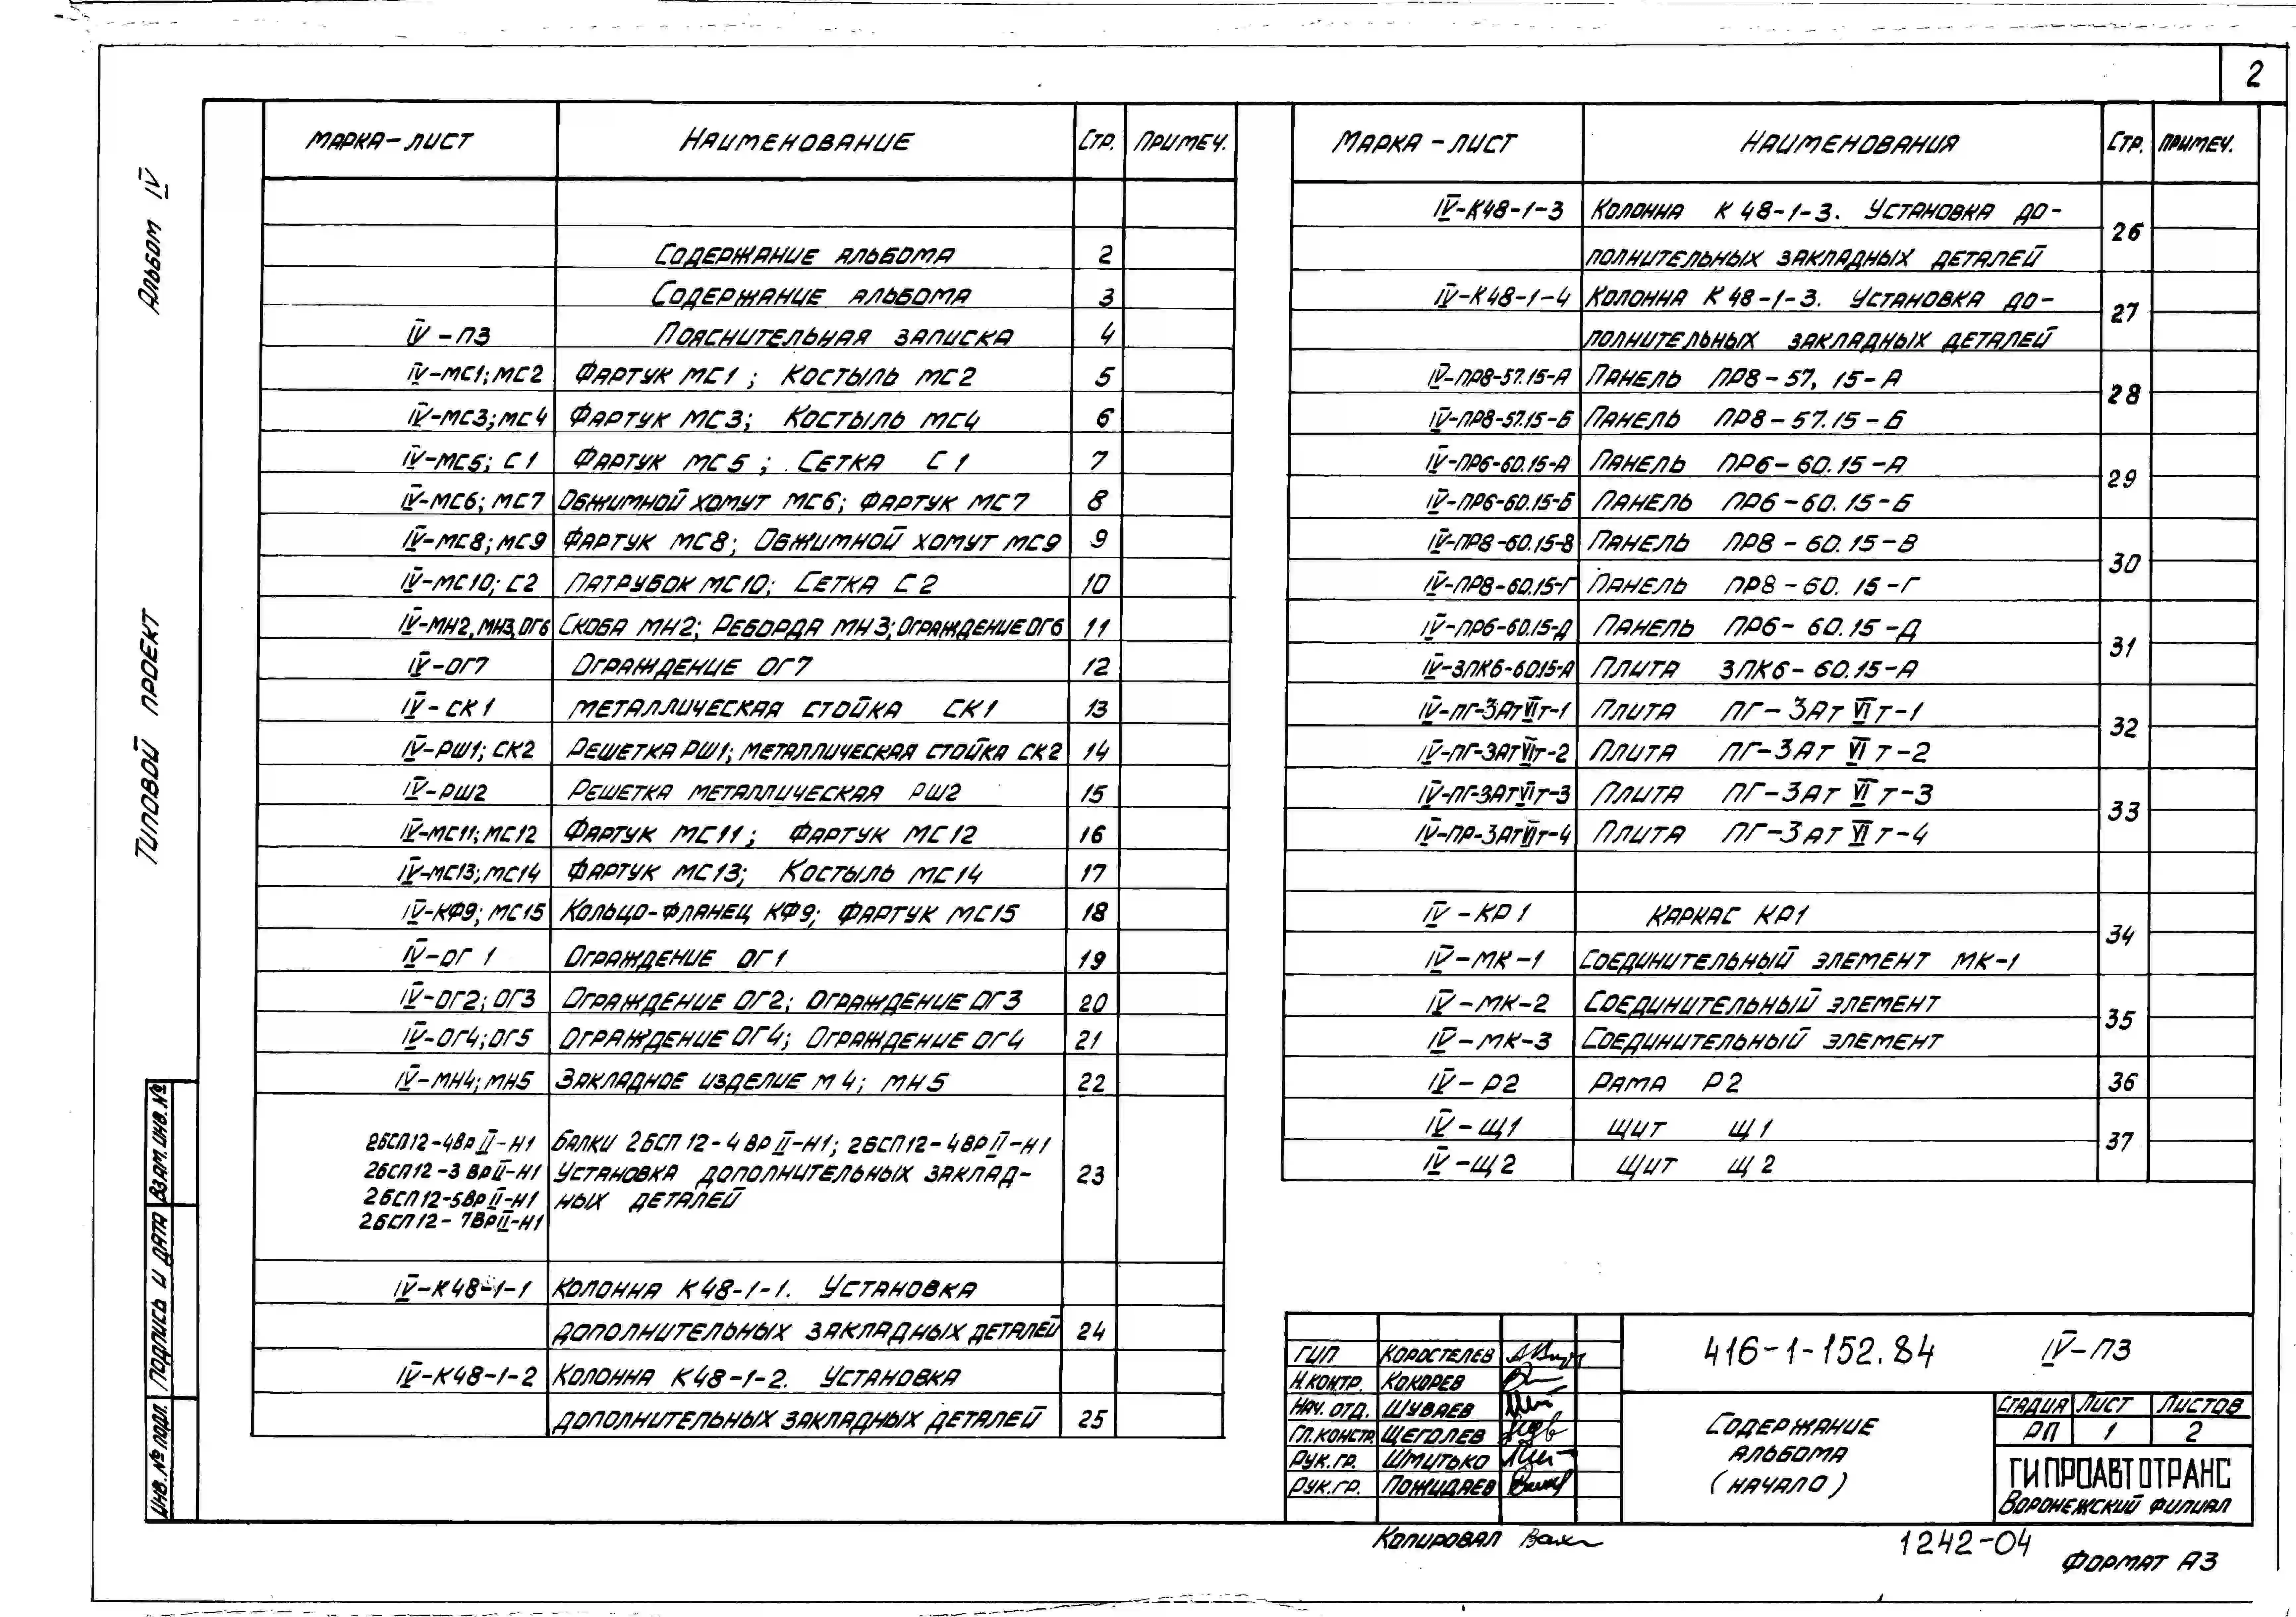 2
Альбом IV
Типовой проект
Марка-лист Наименование Стр. Примеч.
Содержание альбома 2
Содержание альбома 3
IV-ПЗ Пояснительная записка 4
IV-МС1; МС2 Фартук МС1; Костыль МС2 5
IV-МС3; МС4 Фартук МС3; Костыль МС4 6
IV-МС5; С1 Фартук МС5; Сетка С1 7
IV-МС6; МС7 Обжимной хомут МС6; Фартук МС7 8
IV-МС8; МС9 Фартук МС8; Обжимной хомут МС9 9
IV-МС10; С2 Патрубок МС10; Сетка С2 10
IV-МН2, МН3, ОГ6 Скоба МН2; Реборда МН3; Ограждение ОГ6 11
IV-ОГ7 Ограждение ОГ7 12
IV-СК1 Металлическая стойка СК1 13
IV-РШ1; СК2 Решетка РШ1; Металлическая стойка СК2 14
IV-РШ2 Решетка металлическая РШ2 15
IV-МС11; МС12 Фартук МС11; Фартук МС12 16
IV-МС13; МС14 Фартук МС13; Костыль МС14 17
IV-КФ9; МС15 Кольцо-фланец КФ9; Фартук МС15 18
IV-ОГ1 Ограждение ОГ1 19
IV-ОГ2; ОГ3 Ограждение ОГ2; Ограждение ОГ3 20
IV-ОГ4; ОГ5 Ограждение ОГ4; Ограждение ОГ4 21
IV-МН4; МН5 Закладное изделие М4; МН5 22
2БСП12-4ВрII-Н1 Балки 2БСП12-4ВрII-Н1; 2БСП12-4ВрII-Н1
2БСП12-3ВрII-Н1 Установка дополнительных заклад- 23
2БСП12-5ВрII-Н1 ных деталей
2БСП12-7ВрII-Н1
IV-К48-1-1 Колонна К48-1-1. Установка
дополнительных закладных деталей 24
IV-К48-1-2 Колонна К48-1-2. Установка
дополнительных закладных деталей 25
Марка-лист Наименования Стр. Примеч.
IV-К48-1-3 Колонна К48-1-3. Установка до-
26
полнительных закладных деталей
IV-К48-1-4 Колонна К48-1-3. Установка до-
27
полнительных закладных деталей
IV-ПР8-57.15-А Панель ПР8-57,15-А
28
IV-ПР8-57.15-Б Панель ПР8-57.15-Б
IV-ПР6-60.15-А Панель ПР6-60.15-А
29
IV-ПР6-60.15-Б Панель ПР6-60.15-Б
IV-ПР8-60.15-В Панель ПР8-60.15-В
30
IV-ПР8-60.15-Г Панель ПР8-60.15-Г
IV-ПР6-60.15-Д Панель ПР6-60.15-Д
31
IV-ЗПК6-60.15-А Плита ЗПК6-60.15-А
IV-ПГ-3АтVIт-1 Плита ПГ-3АтVIт-1
32
IV-ПГ-3АтVIт-2 Плита ПГ-3АтVIт-2
IV-ПГ-3АтVIт-3 Плита ПГ-3АтVIт-3
33
IV-ПР-3АтVIт-4 Плита ПГ-3АтVIт-4
IV-КР1 Каркас КР1
34
IV-МК-1 Соединительный элемент МК-1
IV-МК-2 Соединительный элемент
35
IV-МК-3 Соединительный элемент
IV-Р2 Рама Р2 36
IV-Щ1 Щит Щ1
37
IV-Щ2 Щит Щ2
Взам. инв. №
Подпись и дата
Инв. № подл.
ГИП Коростелев
Н.контр. Кокорев
Нач. отд. Шуваев
Гл.констр. Щеголев
Рук.гр. Шмитько
Рук.гр. Пожидаев
416-1-152.84 IV-ПЗ
Содержание
альбома
(начало)
Стадия Лист Листов
РП 1 2
ГИПРОАВТОТРАНС
Воронежский филиал
Копировал
1242-04
Формат А3